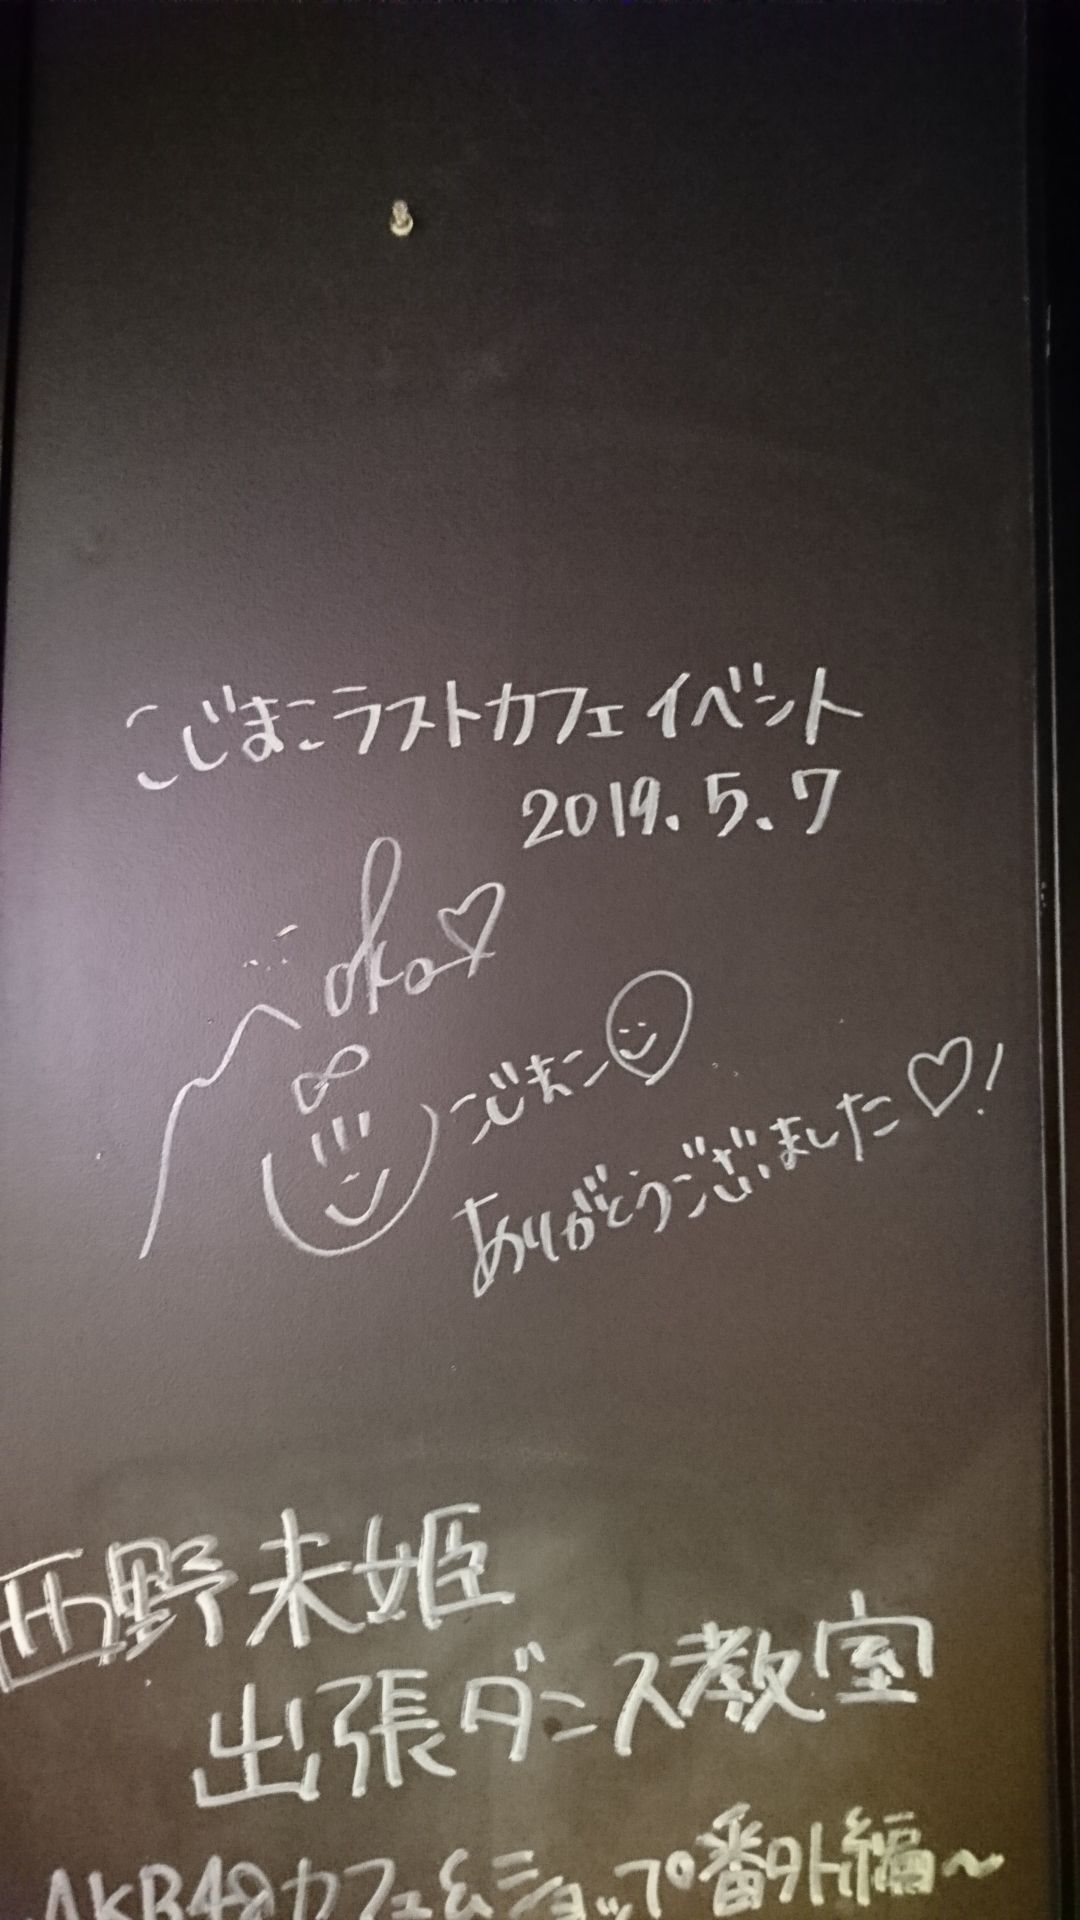 こじまこラストカフェイベント
2019.5.7
こじまこ
ありがとうございました♡!
西野未姫
出張ダンス教室
AKB48カフェ&ショップ番外編～